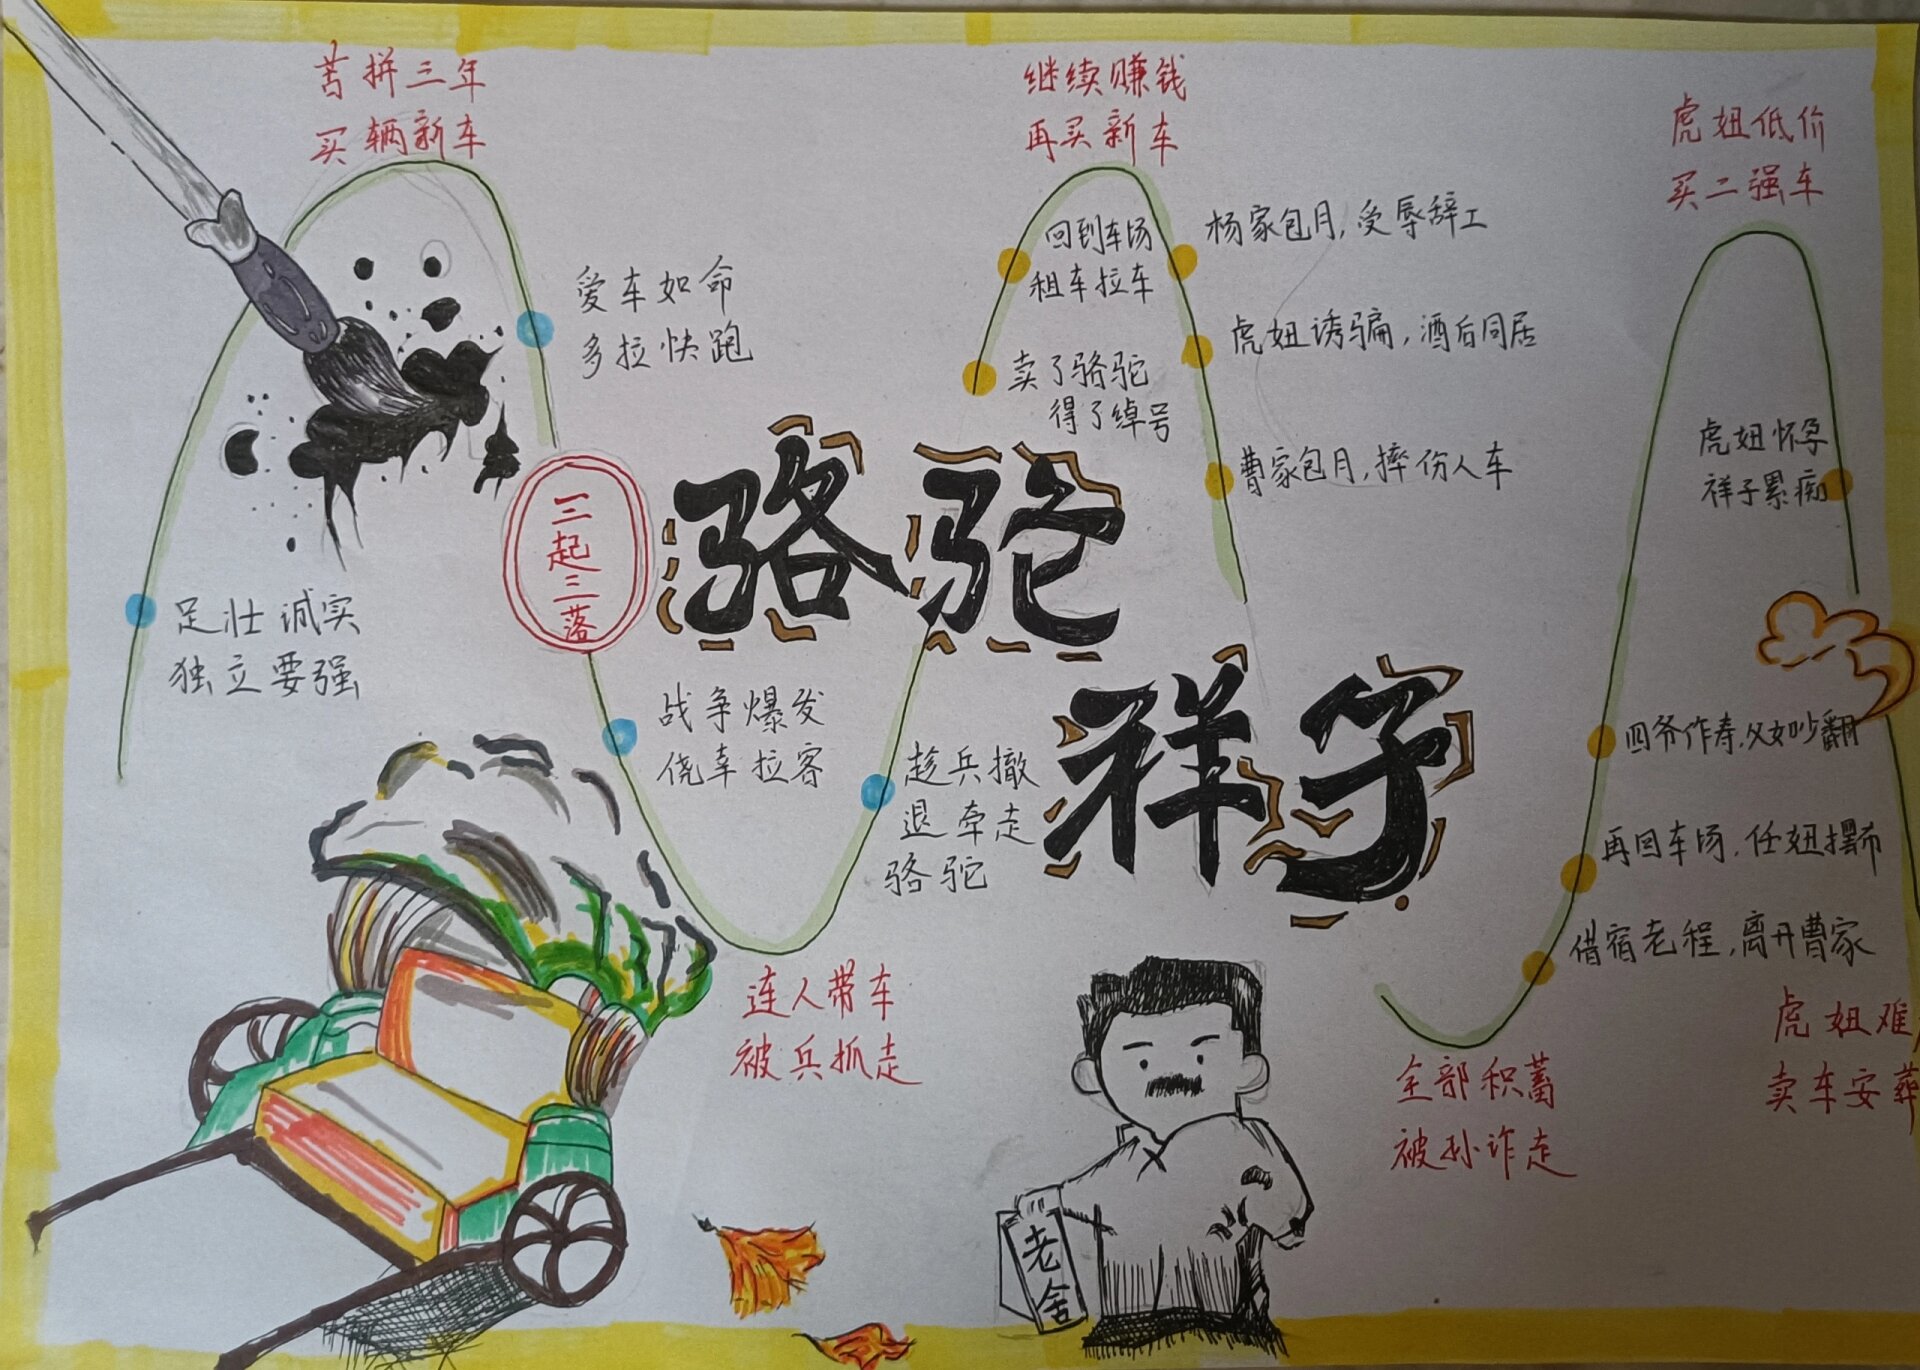 苦拼三年
买辆新车
爱车如命
多拉快跑
足壮诚实
独立要强
三起三落
骆驼
祥子
战争爆发
侥幸拉客
连人带车
被兵抓走
趁兵撤
退牵走
骆驼
继续赚钱
再买新车
回到车场
租车拉车
卖了骆驼
得了绰号
杨家包月,受辱辞工
虎妞诱骗,酒后同居
曹家包月,摔伤人车
全部积蓄
被孙诈走
虎妞低价
买二强车
虎妞怀孕
祥子累病
四爷作寿,父女吵翻
再回车场,任妞摆布
借宿老程,离开曹家
虎妞难
卖车安葬
老舍